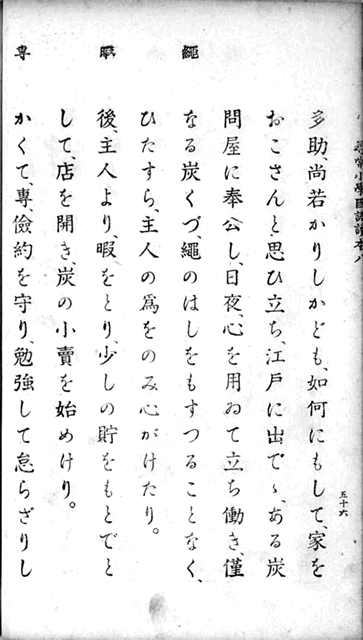 尋常小學國語讀本卷八
五十六
多助、尚若かりしかども、如何にもして、家を
おこさんと思ひ立ち、江戸に出でゝ、ある炭
問屋に奉公し、日夜、心を用ゐて立ち働き、僅
なる炭くづ、繩のはしをもすつることなく、
ひたすら、主人の爲をのみ心がけたり。
後、主人より、暇をとり、少しの貯をもとでと
して、店を開き、炭の小賣を始めけり。
かくて、專、儉約を守り、勉强して怠らざりし
繩
暇
專